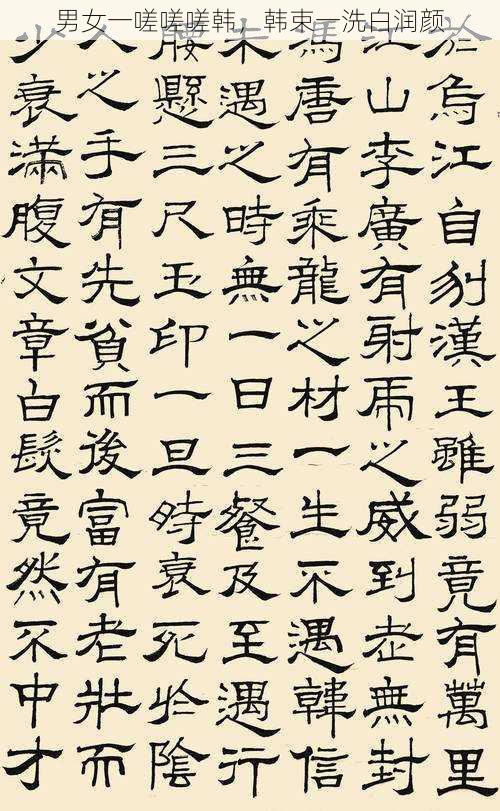 男女一嗟嗟嗟韩，韩束一洗白润颜
於烏江自刎漢王雖弱竟有萬里
江山李廣有射虎之威到老無封
馮唐有乘龍之材一生不遇韓信
未遇之時無一日三餐及至遇行
腰懸三尺玉印一旦時衰死於陰
人之手有先貧而後富有老壯而
少衰滿腹文章白髮竟然不中才